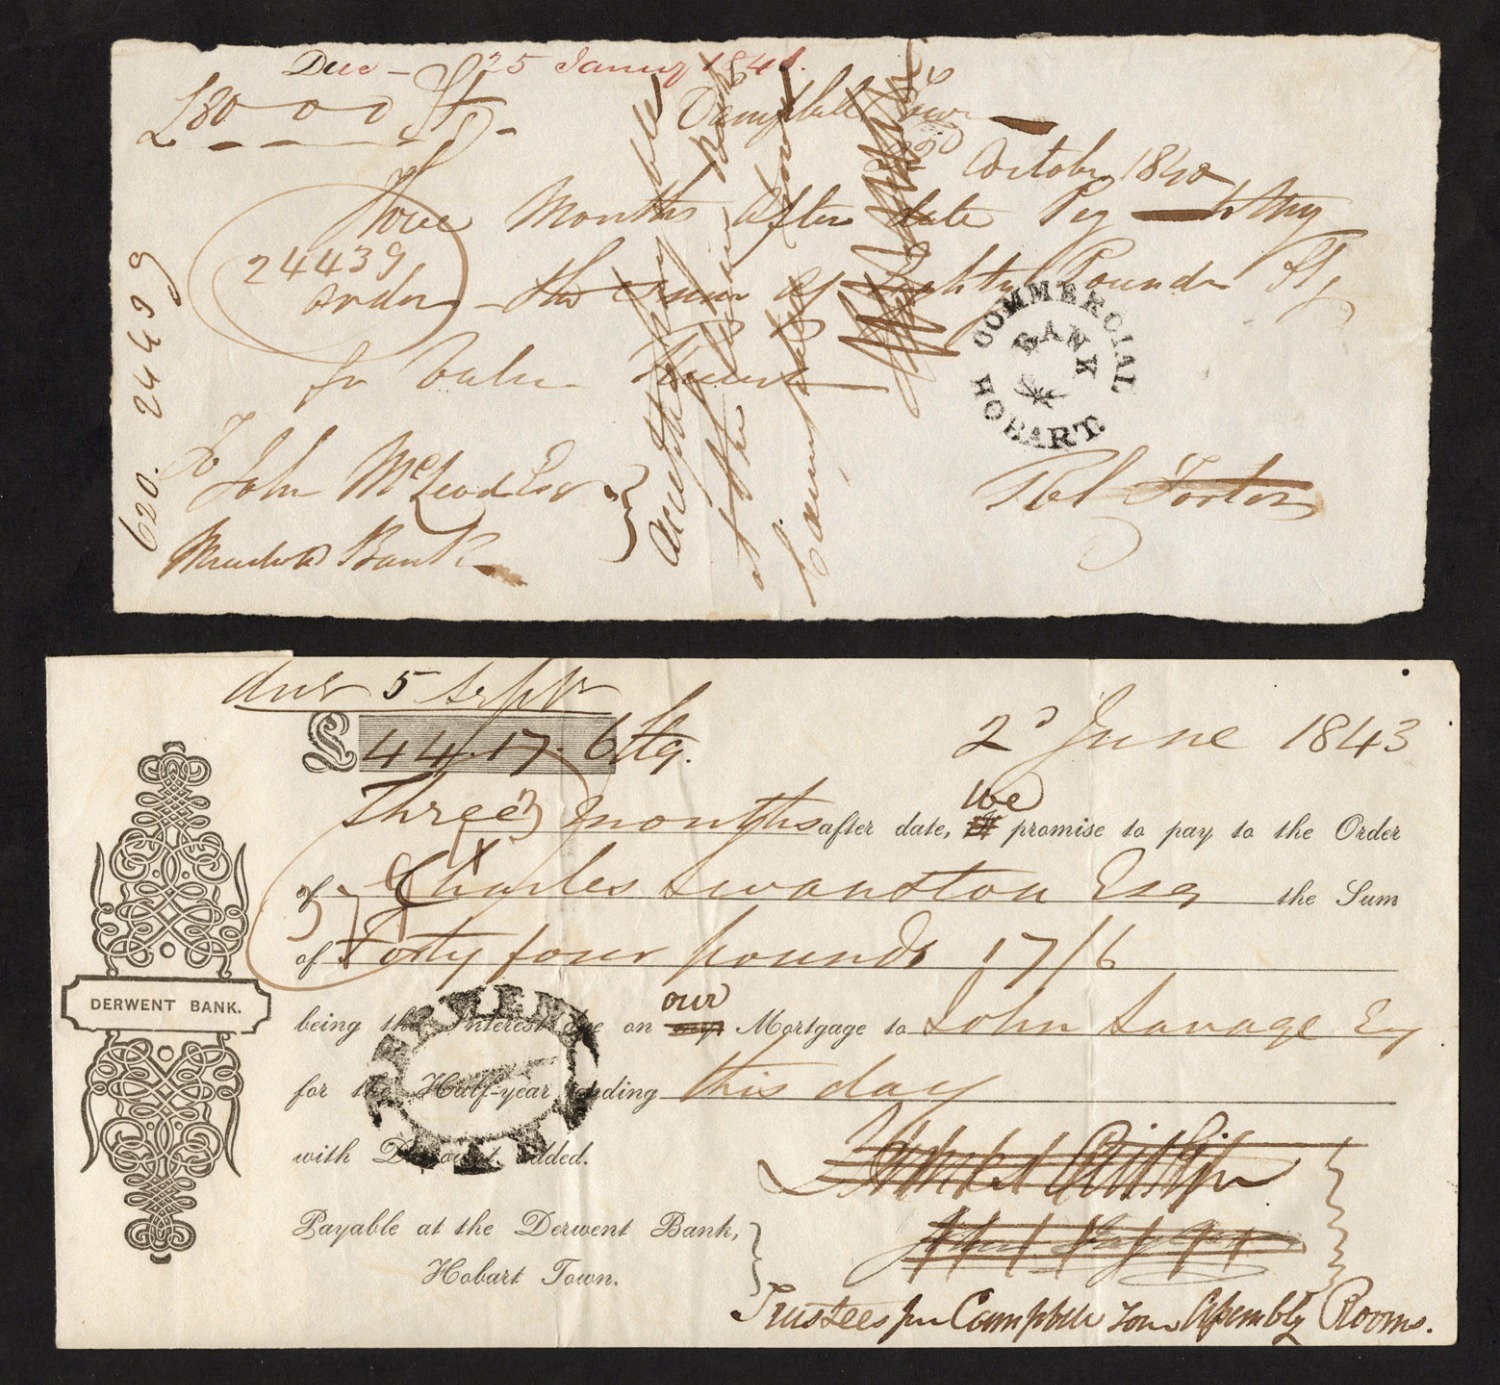 Due - 25 Jany 1841.
£80 - 0 - 0 Stg -
Campbell Town
22nd October 1840
Three Months After date Pay to My
24439
order - the sum of Eighty Pounds Stg
for Value Received
COMMERCIAL BANK HOBART.
To John McLeod Esqr
Bank
Robt
620. 24439
accepted payable
at the
due 5 Septr
£44.17.6 Stg.
2d June 1843
Three 3 months after date, we promise to pay to the Order
of Charles Swanston Esq the Sum
of Forty four pounds 17/6
being the Interest due on our Mortgage to John Savage Esq
for the Half-year ending this day
with Discount added.
Payable at the Derwent Bank,
Hobart Town.
DERWENT BANK.
Trustees for Campbell Town Assembly Rooms.